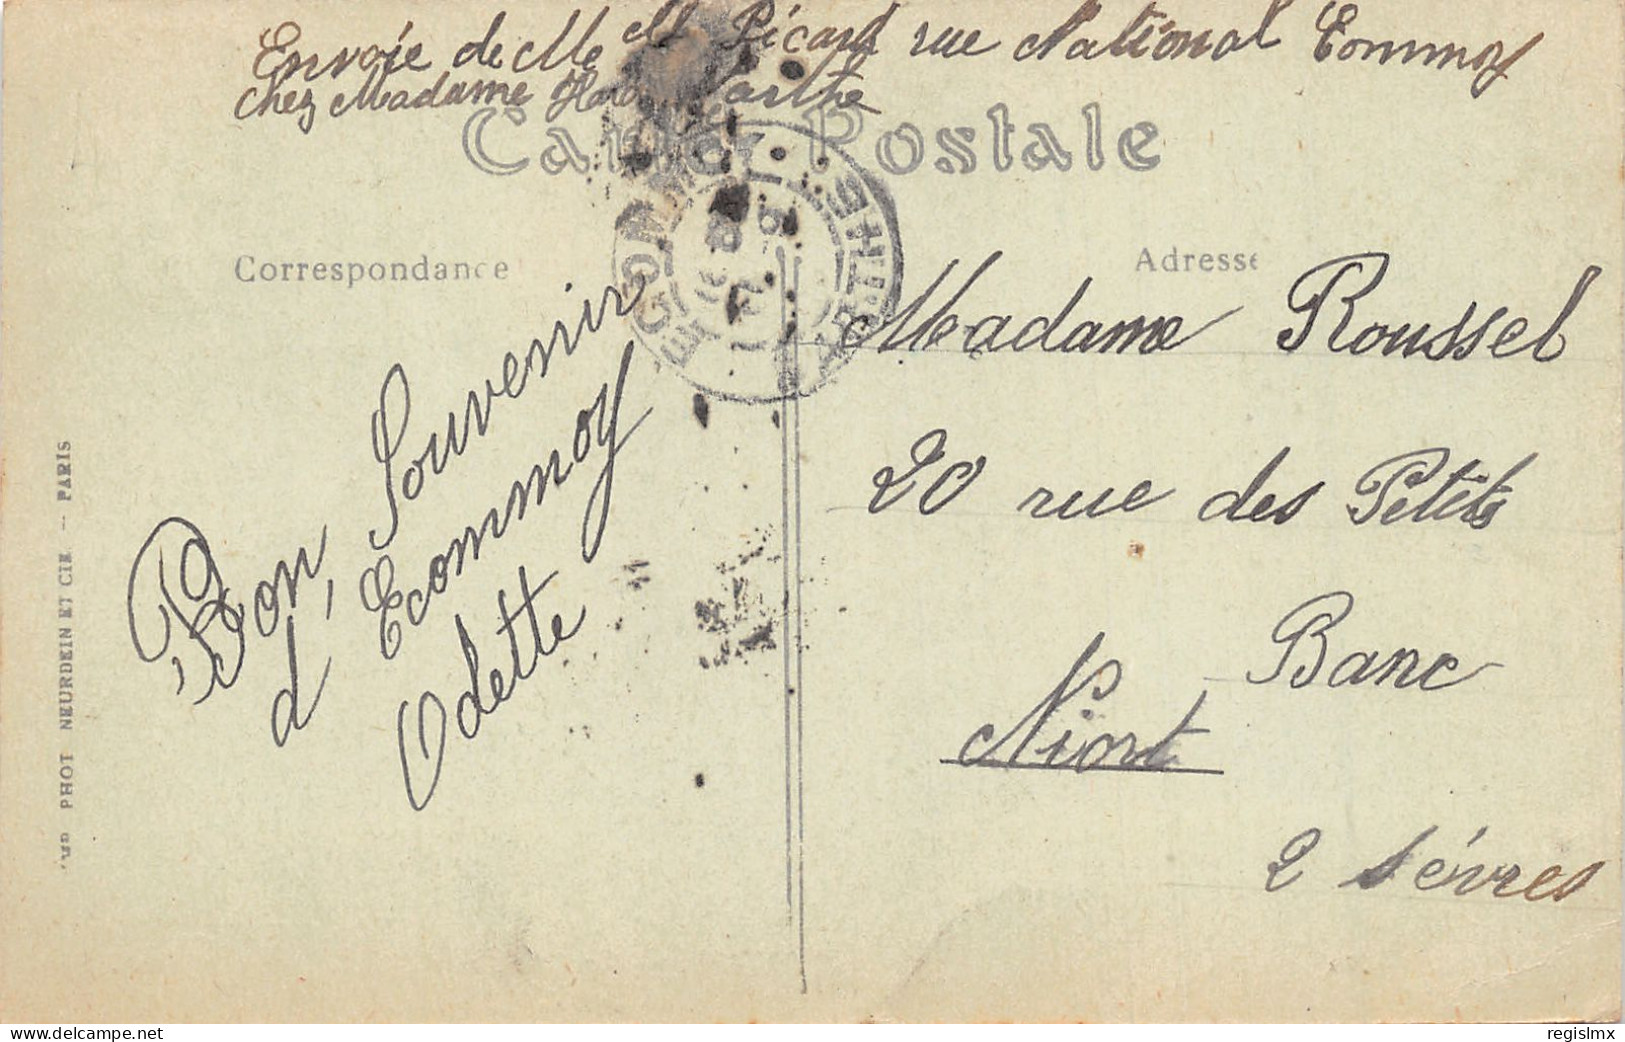 Envoie de Mme M Picard rue National Ecommoy
chez Madame Marthe
Carte Postale
Correspondance
Adresse
ECOMMOY SARTHE
Bon Souvenir
d'Ecommoy
Odette
Madame Roussel
20 rue des Petits
Banc
Niort
2 Sévres
PHOT NEURDEIN ET CIE — PARIS
www.delcampe.net
regislmx